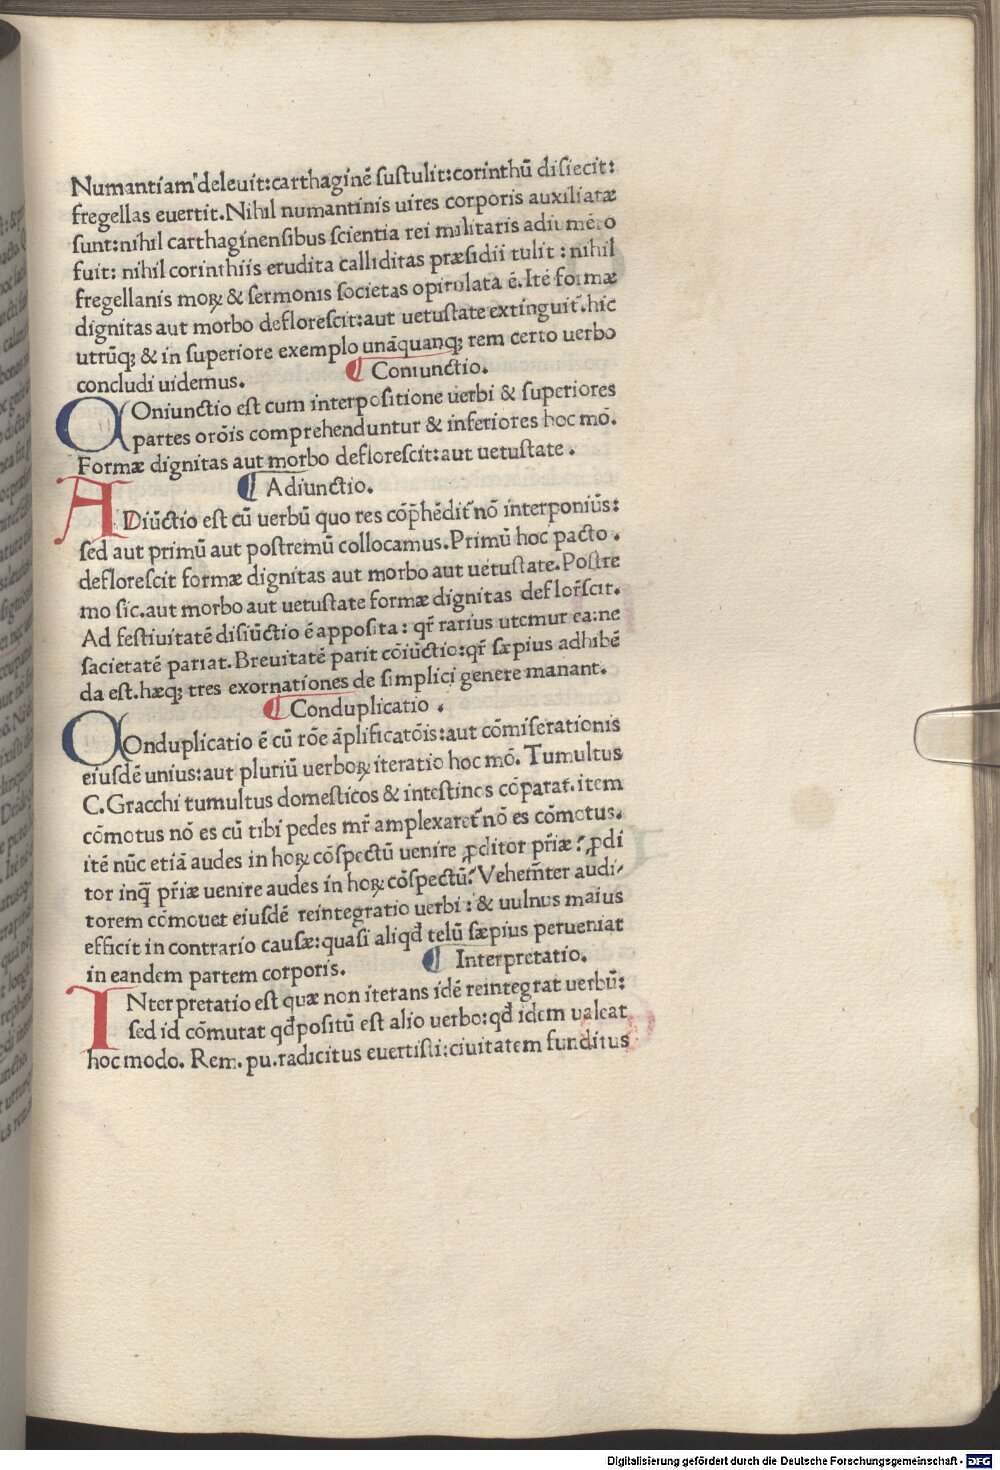 Numantiam deleuit:carthaginē ſuſtulit:corinthū diſiecit:
fregellas euertit.Nihil numantinis uires corporis auxiliatæ
ſunt:nihil carthaginenſibus ſcientia rei militaris adiumēto
fuit: nihil corinthiis erudita calliditas præſidii tulit : nihil
fregellanis moꝝ & ſermonis ſocietas opitulata ē.Itē formæ
dignitas aut morbo defloreſcit:aut uetuſtate extinguit᷑.hic
utrūqꝫ & in ſuperiore exemplo unāquanqꝫ rem certo uerbo
concludi uidemus.
¶ Coniunctio.
COniunctio eſt cum interpoſitione uerbi & ſuperiores
partes orōis comprehenduntur & inferiores hoc mō.
Formæ dignitas aut morbo defloreſcit:aut uetuſtate .
¶ Adiunctio.
ADiūctio eſt cū uerbū quo res cōp̄hēdit᷑ nō interponiūs:
ſed aut primū aut poſtremū collocamus.Primū hoc pacto .
defloreſcit formæ dignitas aut morbo aut uetuſtate.Poſtre
mo ſic.aut morbo aut uetuſtate formæ dignitas deflorſ̄cit.
Ad feſtiuitatē diſiūctio ē appoſita: qr̄ rarius utemur ea:ne
ſacietatē pariat.Breuitatē parit cōiūctio:qr̄ ſæpius adhibē
da eſt.hæqꝫ tres exornationes de ſimplici genere manant.
¶ Conduplicatio .
COnduplicatio ē cū rōe āplificatōis:aut cōmiſerationis
eiuſdē unius:aut pluriū uerboꝝ iteratio hoc mō. Tumultus
C.Gracchi tumultus domeſticos & inteſtinos cōparat.item
cōmotus nō es cū tibi pedes mr̄ amplexaret᷑ nō es cōmotus.
itē nūc etiā audes in hoꝝ cōſpectū uenire ꝓditor pr̄iæ? ꝓdi
tor inq̄ pr̄iæ uenire audes in hoꝝ cōſpectū? Vehem̄ter audi/
torem cōmouet eiuſdē reintegratio uerbi : & uulnus maius
efficit in contrario cauſæ:quaſi aliqd̄ telū ſæpius perueniat
in eandem partem corporis.
¶ Interpretatio.
INterpretatio eſt quæ non iterans idē reintegrat uerbū:
ſed id cōmutat qd̄ poſitū eſt alio uerbo:qd̄ idem ualeat
hoc modo. Rem. pu.radicitus euertiſti:ciuitatem funditus
Digitalisierung gefördert durch die Deutsche Forschungsgemeinschaft - DFG